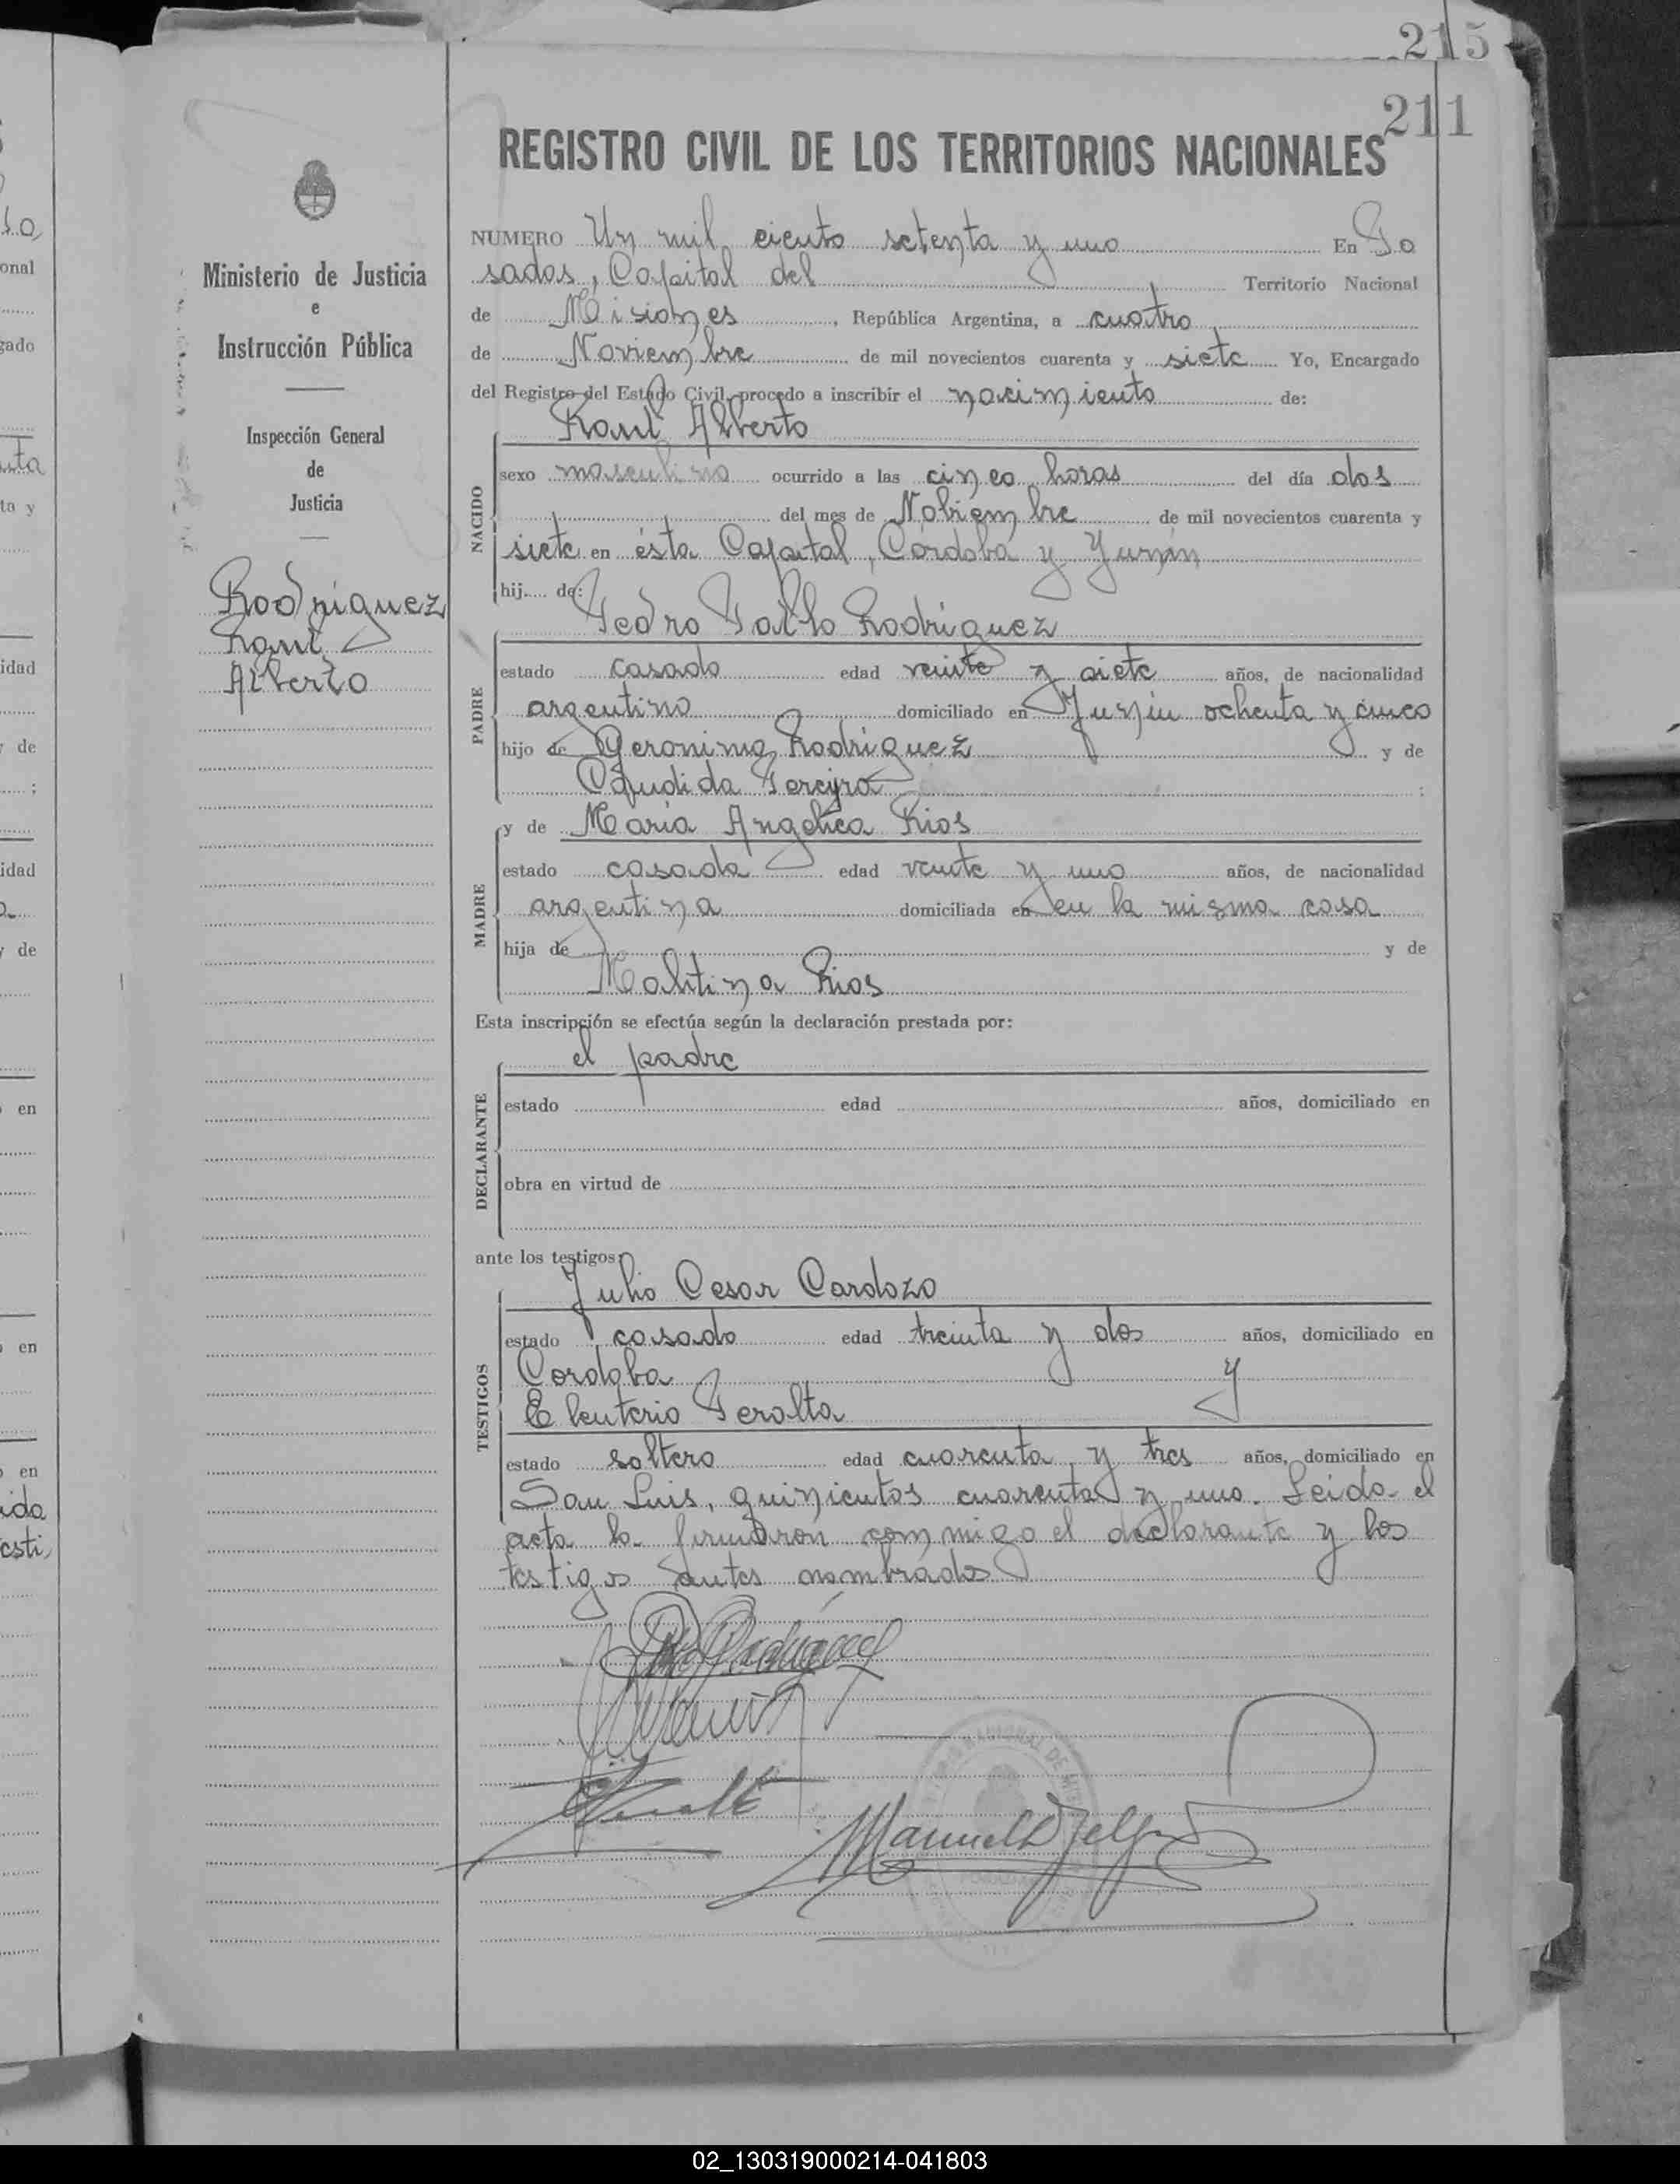 215
211
REGISTRO CIVIL DE LOS TERRITORIOS NACIONALES
Ministerio de Justicia
e
Instrucción Pública
Inspección General
de
Justicia
Rodriguez
Raul
Alberto
NUMERO Un mil ciento setenta y uno En Po
sadas, Capital del Territorio Nacional
de Misiones, República Argentina, a cuatro
de Noviembre de mil novecientos cuarenta y siete Yo, Encargado
del Registro del Estado Civil, procedo a inscribir el nacimiento de:
Raul Alberto
NACIDO
sexo masculino ocurrido a las cinco horas del día dos
del mes de Nobiembre de mil novecientos cuarenta y
siete en ésta Capital, Cordoba y Junin
hij.... de:
Pedro Pablo Rodriguez
PADRE
estado casado edad veinte y siete años, de nacionalidad
argentino domiciliado en Junin ochenta y cinco
hijo de Geronimo Rodriguez y de
Candida Pereyra :
MADRE
y de Maria Angelica Rios
estado casada edad veinte y uno años, de nacionalidad
argentina domiciliada en en la misma casa
hija de y de
Rios
Esta inscripción se efectúa según la declaración prestada por:
el padre
DECLARANTE
estado edad años, domiciliado en
obra en virtud de
ante los testigos:
Julio Cesar Cardozo
TESTIGOS
estado casado edad treinta y dos años, domiciliado en
Cordoba y
Eleuterio Peralta
estado soltero edad cuarenta y tres años, domiciliado en
San Luis, quinientos cuarenta y uno. Leida el
acta la firmaron conmigo el declarante y los
testigos antes nombrados
02_130319000214-041803